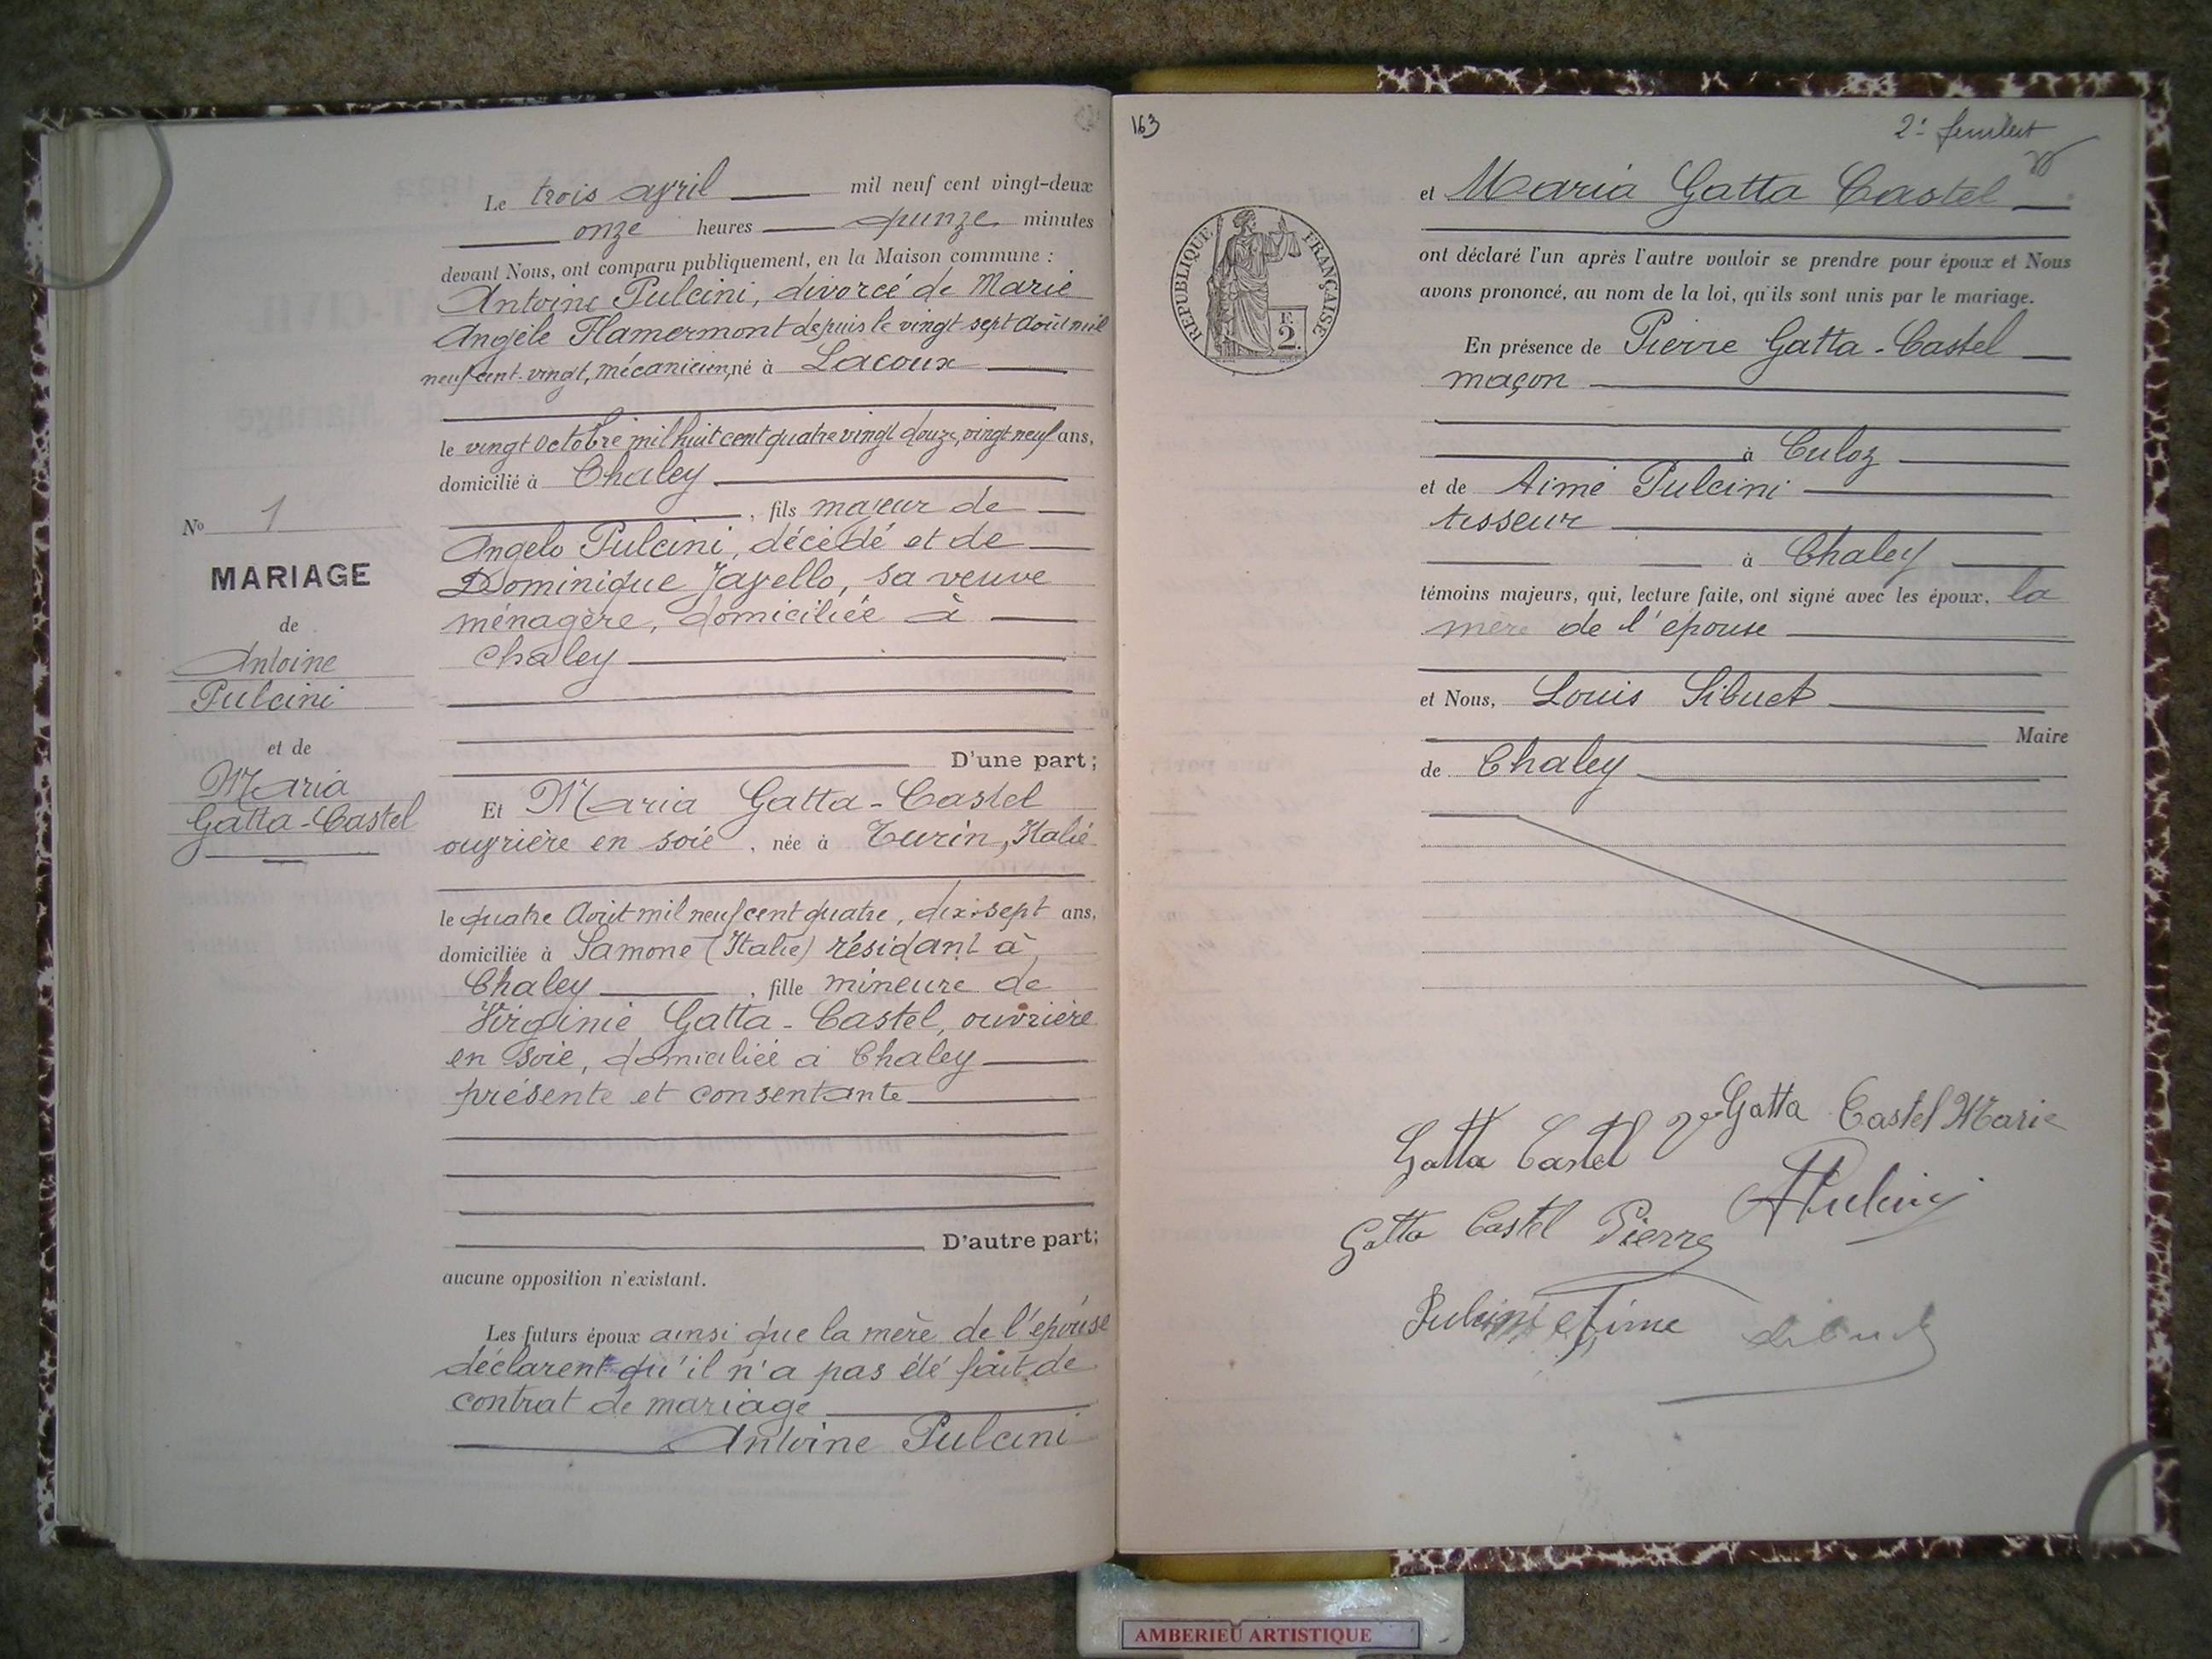 Le trois avril mil neuf cent vingt-deux
onze heures quinze minutes
devant Nous, ont comparu publiquement, en la Maison commune :
Antoine Pulcini, divorcé de Marie
Angèle Flamermont depuis le vingt sept Août mil
neuf cent vingt, mécanicien, né à Lacoux
le vingt Octobre mil huit cent quatre vingt douze, vingt neuf ans,
domicilié à Chaley
, fils majeur de
Angelo Pulcini, décédé et de
Dominique Javello, sa veuve
ménagère, domiciliée à
Chaley
D'une part ;
Nº 1
MARIAGE
de
Antoine
Pulcini
et de
Maria
Gatta-Castel
Et Maria Gatta-Castel
ouvrière en soie, née à Turin, Italie
le quatre Août mil neuf cent quatre, dix-sept ans,
domiciliée à Samone (Italie) résidant à
Chaley, fille mineure de
Virginie Gatta-Castel, ouvrière
en soie, domiciliée à Chaley
présente et consentante
D'autre part ;
aucune opposition n'existant.
Les futurs époux ainsi que la mère de l'épouse
déclarent qu'il n'a pas été fait de
contrat de mariage
Antoine Pulcini
163
2e feuillet
et Maria Gatta Castel
ont déclaré l'un après l'autre vouloir se prendre pour époux et Nous
avons prononcé, au nom de la loi, qu'ils sont unis par le mariage.
RÉPUBLIQUE FRANÇAISE
F.
2
En présence de Pierre Gatta-Castel
maçon
à Culoz
et de Aimé Pulcini
tisseur
à Chaley
témoins majeurs, qui, lecture faite, ont signé avec les époux, la
mère de l'épouse
et Nous, Louis Sibuet
Maire
de Chaley
Gatta Castel Marie
Gatta Castel
APulcini
Gatta Castel Pierre
Pulcini Aime
Sibuet
AMBERIEU ARTISTIQUE